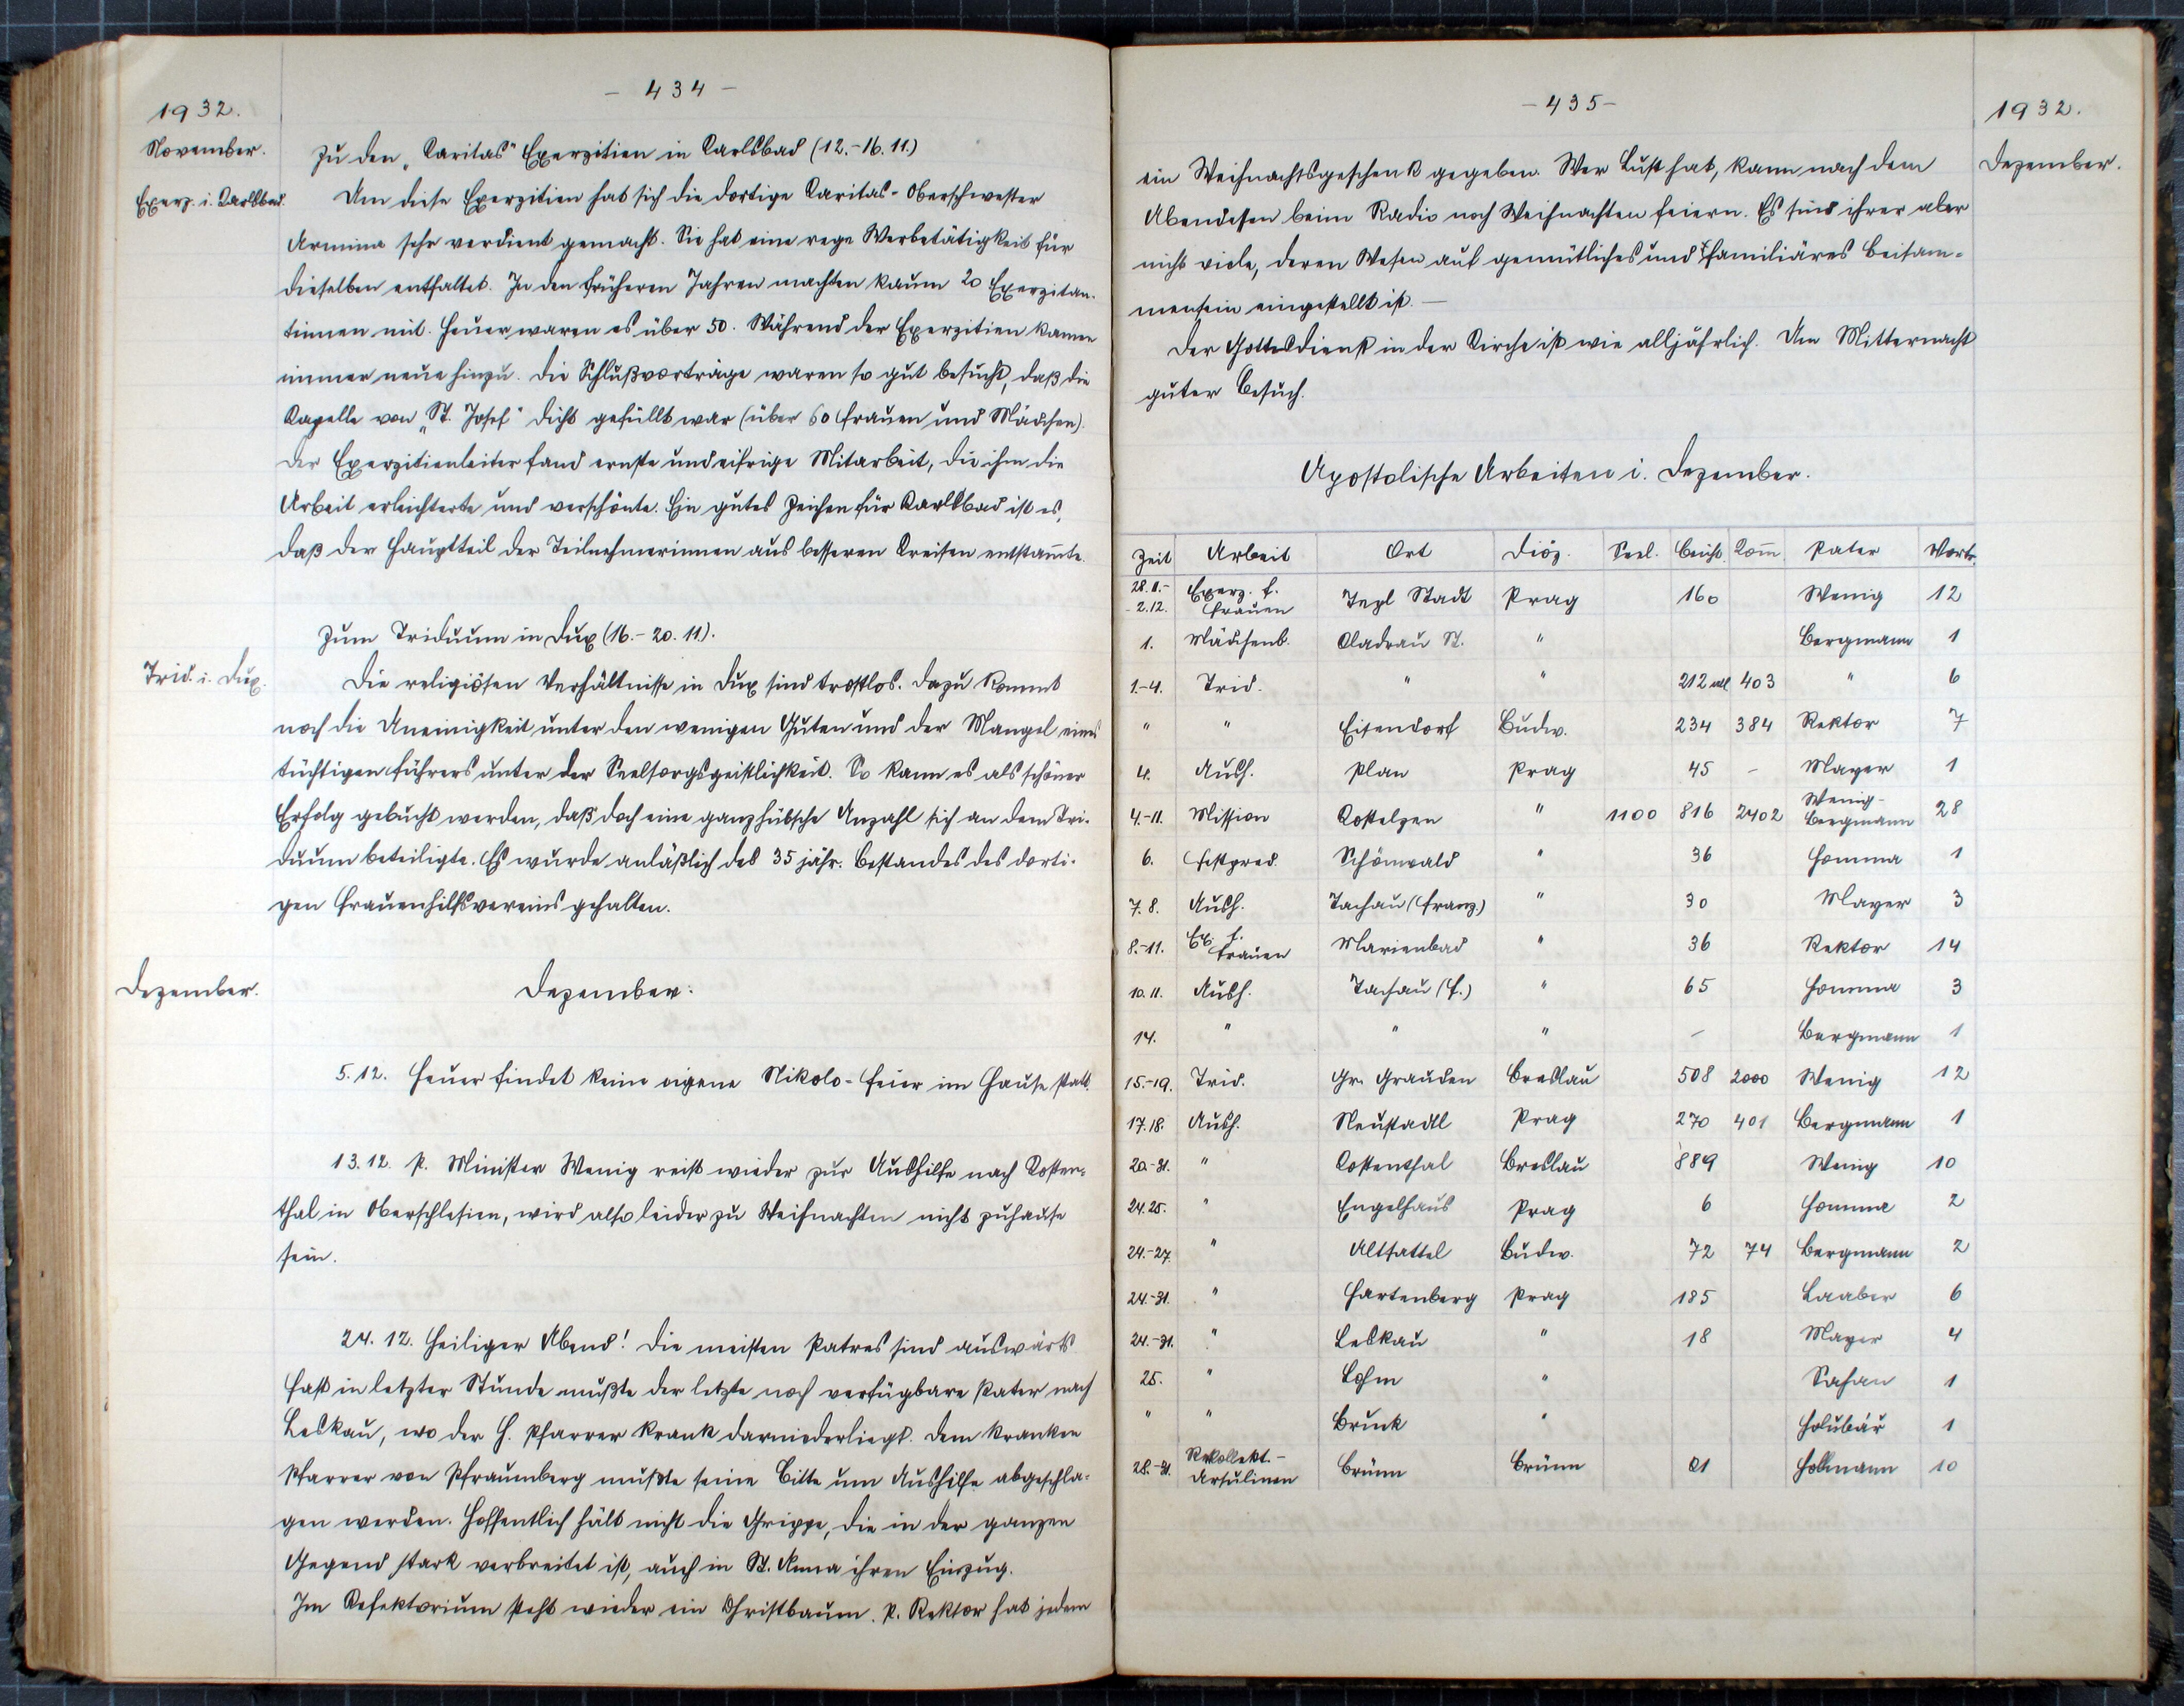 - 434 -
1932.
November.
Zu den „Caritas" Exerzitien in Karlsbad (12.-16.11.)
Exerz. i. Karlsbad.
Um diese Exerzitien hat sich die dortige Caritas-Oberschwester
Armina sehr verdient gemacht. Sie hat eine rege Werbetätigkeit für
dieselben entfaltet. In den früheren Jahren machten kaum 20 Exerzitan-
tinnen mit. Heuer waren es über 50. Während der Exerzitien kamen
immer neue hinzu. Die Schlußvorträge waren so gut besucht, daß die
Kapelle von „St. Josef" dicht gefüllt war (über 60 Frauen und Mädchen).
Der Exerzitienleiter fand ernste und eifrige Mitarbeit, die ihm die
Arbeit erleichterte und verschönte. Ein gutes Zeichen für Karlsbad ist es,
daß der Hauptteil der Teilnehmerinnen aus besseren Kreisen entstam̄te.
Zum Triduum in Dux (16.-20.11.).
Trid. i. Dux.
Die religiösen Verhältnisse in Dux sind trostlos. Dazu kommt
noch die Uneinigkeit unter den wenigen Guten und der Mangel eines
tüchtigen Führers unter der Seelsorgsgeistlichkeit. So kann es als schöner
Erfolg gebucht werden, daß doch eine ganz hübsche Anzahl sich an dem Tri-
duum beteiligte. Es wurde anläßlich des 35 jähr. Bestandes des dorti-
gen Frauenhilfsvereins gehalten.
Dezember.
Dezember.
5.12. Heuer findet keine eigene Nikolo-Feier im Hause statt.
13.12. P. Minister Wenig reist wieder zur Aushilfe nach Kosten-
thal in Oberschlesien, wird also leider zu Weihnachten nicht zuhause
sein.
24.12. Heiliger Abend! Die meisten Patres sind auswärts.
Fast in letzter Stunde mußte der letzte noch verfügbare Pater nach
Leskau, wo der H. Pfarrer krank darniederliegt. Dem kranken
Pfarrer von Pfraumberg mußte seine Bitte um Aushilfe abgeschla-
gen werden. Hoffentlich hält nicht die Grippe, die in der ganzen
Gegend stark verbreitet ist, auch in St. Anna ihren Einzug.
Im Refektorium steht wieder ein Christbaum. P. Rektor hat jedem
- 435 -
1932.
Dezember.
ein Weihnachtsgeschenk gegeben. Wer Lust hat, kann nach dem
Abendessen beim Radio noch Weihnachten feiern. Es sind ihrer aber
nicht viele, deren Wesen auf gemütliches und familiäres Beisam-
mensein eingestellt ist. —
Der Gottesdienst in der Kirche ist wie alljährlich. Um Mitternacht
guter Besuch.
Apostolische Arbeiten i. Dezember.
Zeit Arbeit Ort Diöz. Seel. Beicht. Kom̄. Pater Vortr.
28.11.- 2.12. Exerz. f. Frauen Tepl Stadt Prag 160 Wenig 12
1. Mädchenb. Kladrau St. " Bergmann 1
1.-4. Trid. " " 212 403 " 6
" " Eisendorf Budw. 234 384 Rektor 7
4. Aush. Plan Prag 45 - Mayer 1
4.-11. Mission Kostelzen " 1100 816 2402 Wenig- Bergmann 28
6. Festpred. Schönwald " 36 Homma 1
7.8. Aush. Tachau (Franz.) " 30 Mayer 3
8.-11. Ex. f. Frauen Marienbad " 36 Rektor 14
10.11. Aush. Tachau (f.) " 65 Homma 3
14. " " " - Bergmann 1
15.-19. Trid. Gr. Grauden Breslau 508 2000 Wenig 12
17.18. Aush. Neustadtl Prag 270 401 Bergmann 1
20.-31. " Kostenthal Breslau 889 Wenig 10
24.25. " Engelhaus Prag 6 Homma 2
24.-27. " Altsattel Budw. 72 74 Bergmann 2
24.-31. " Hartenberg Prag 185 Laaber 6
24.-31. " Leskau " 18 Mayer 4
25. " Lohm " 1
" " Bruck " Holubář 1
28.-31. Rekollekt.- Ursulinen Brünn Brünn 21 Hollmann 10